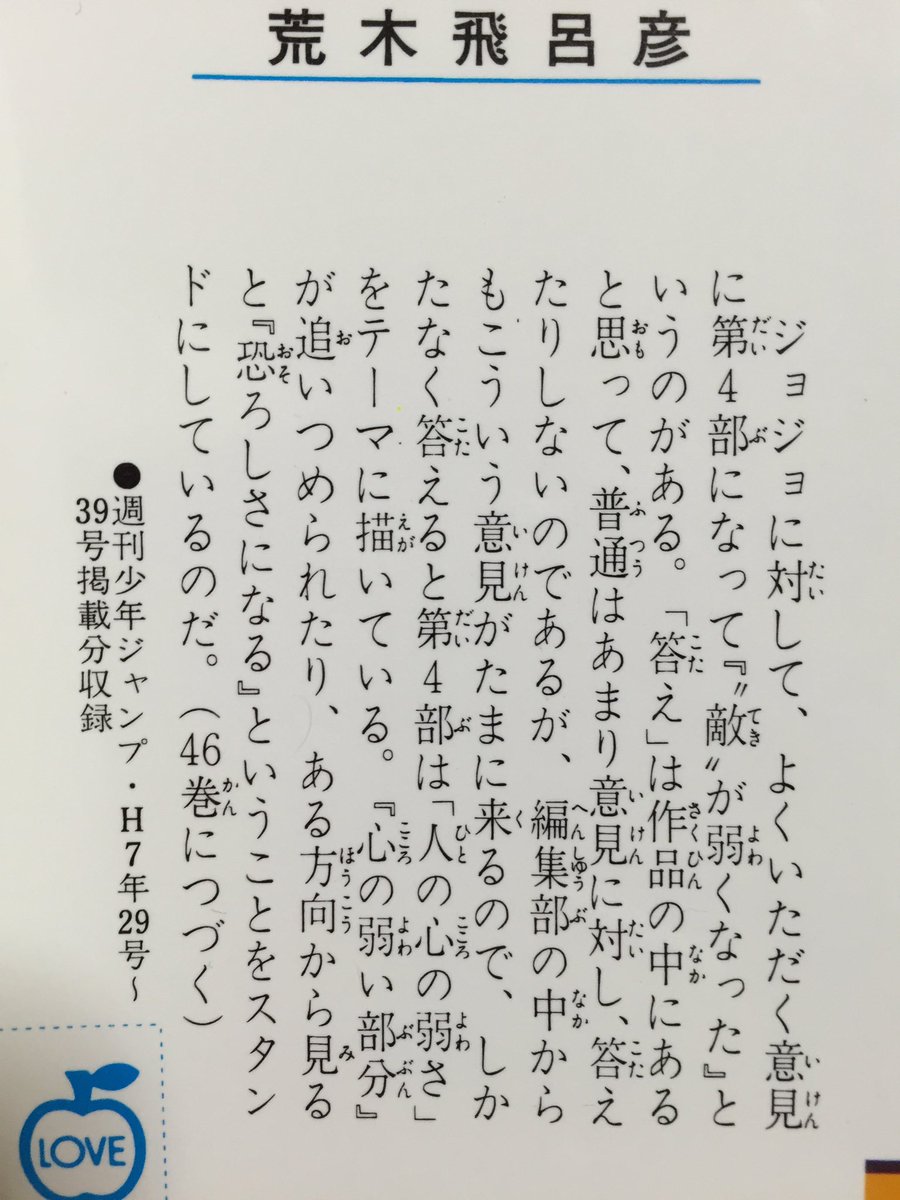 荒木飛呂彦
ジョジョに対して、よくいただく意見
に第4部になって『〝敵〟が弱くなった』と
いうのがある。「答え」は作品の中にある
と思って、普通はあまり意見に対し、答え
たりしないのであるが、編集部の中から
もこういう意見がたまに来るので、しか
たなく答えると第4部は「人の心の弱さ」
をテーマに描いている。『心の弱い部分』
が追いつめられたり、ある方向から見る
と『恐ろしさになる』ということをスタン
ドにしているのだ。(46巻につづく)
●週刊少年ジャンプ・H7年29号~
39号掲載分収録
LOVE